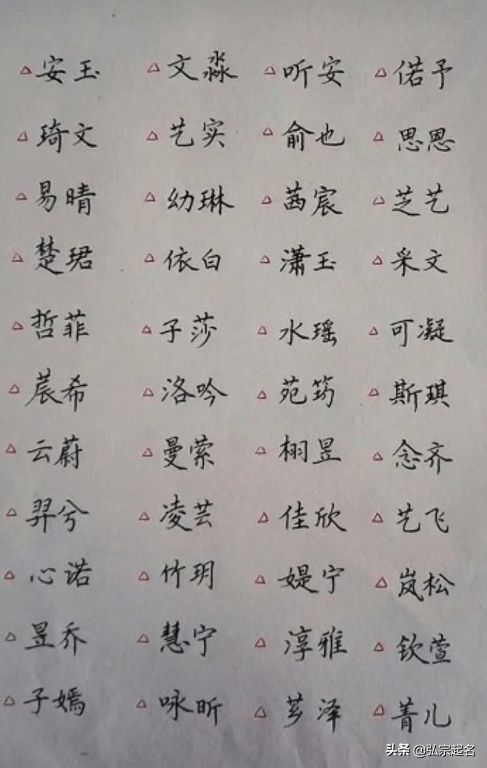 安玉 文淼 听安 偌予
琦文 艺实 俞也 思恩
易晴 幼琳 茜宸 芝艺
楚珺 依白 潇玉 采文
哲菲 子莎 水瑶 可凝
晨希 洛吟 苑筠 斯琪
云蔚 曼萦 栩昱 念齐
羿兮 凌芸 佳欣 艺飞
心诺 竹玥 媞宁 岚松
昱乔 慧宁 淳雅 钦萱
子嫣 咏昕 芗泽 菁儿
头条 @弘宗起名